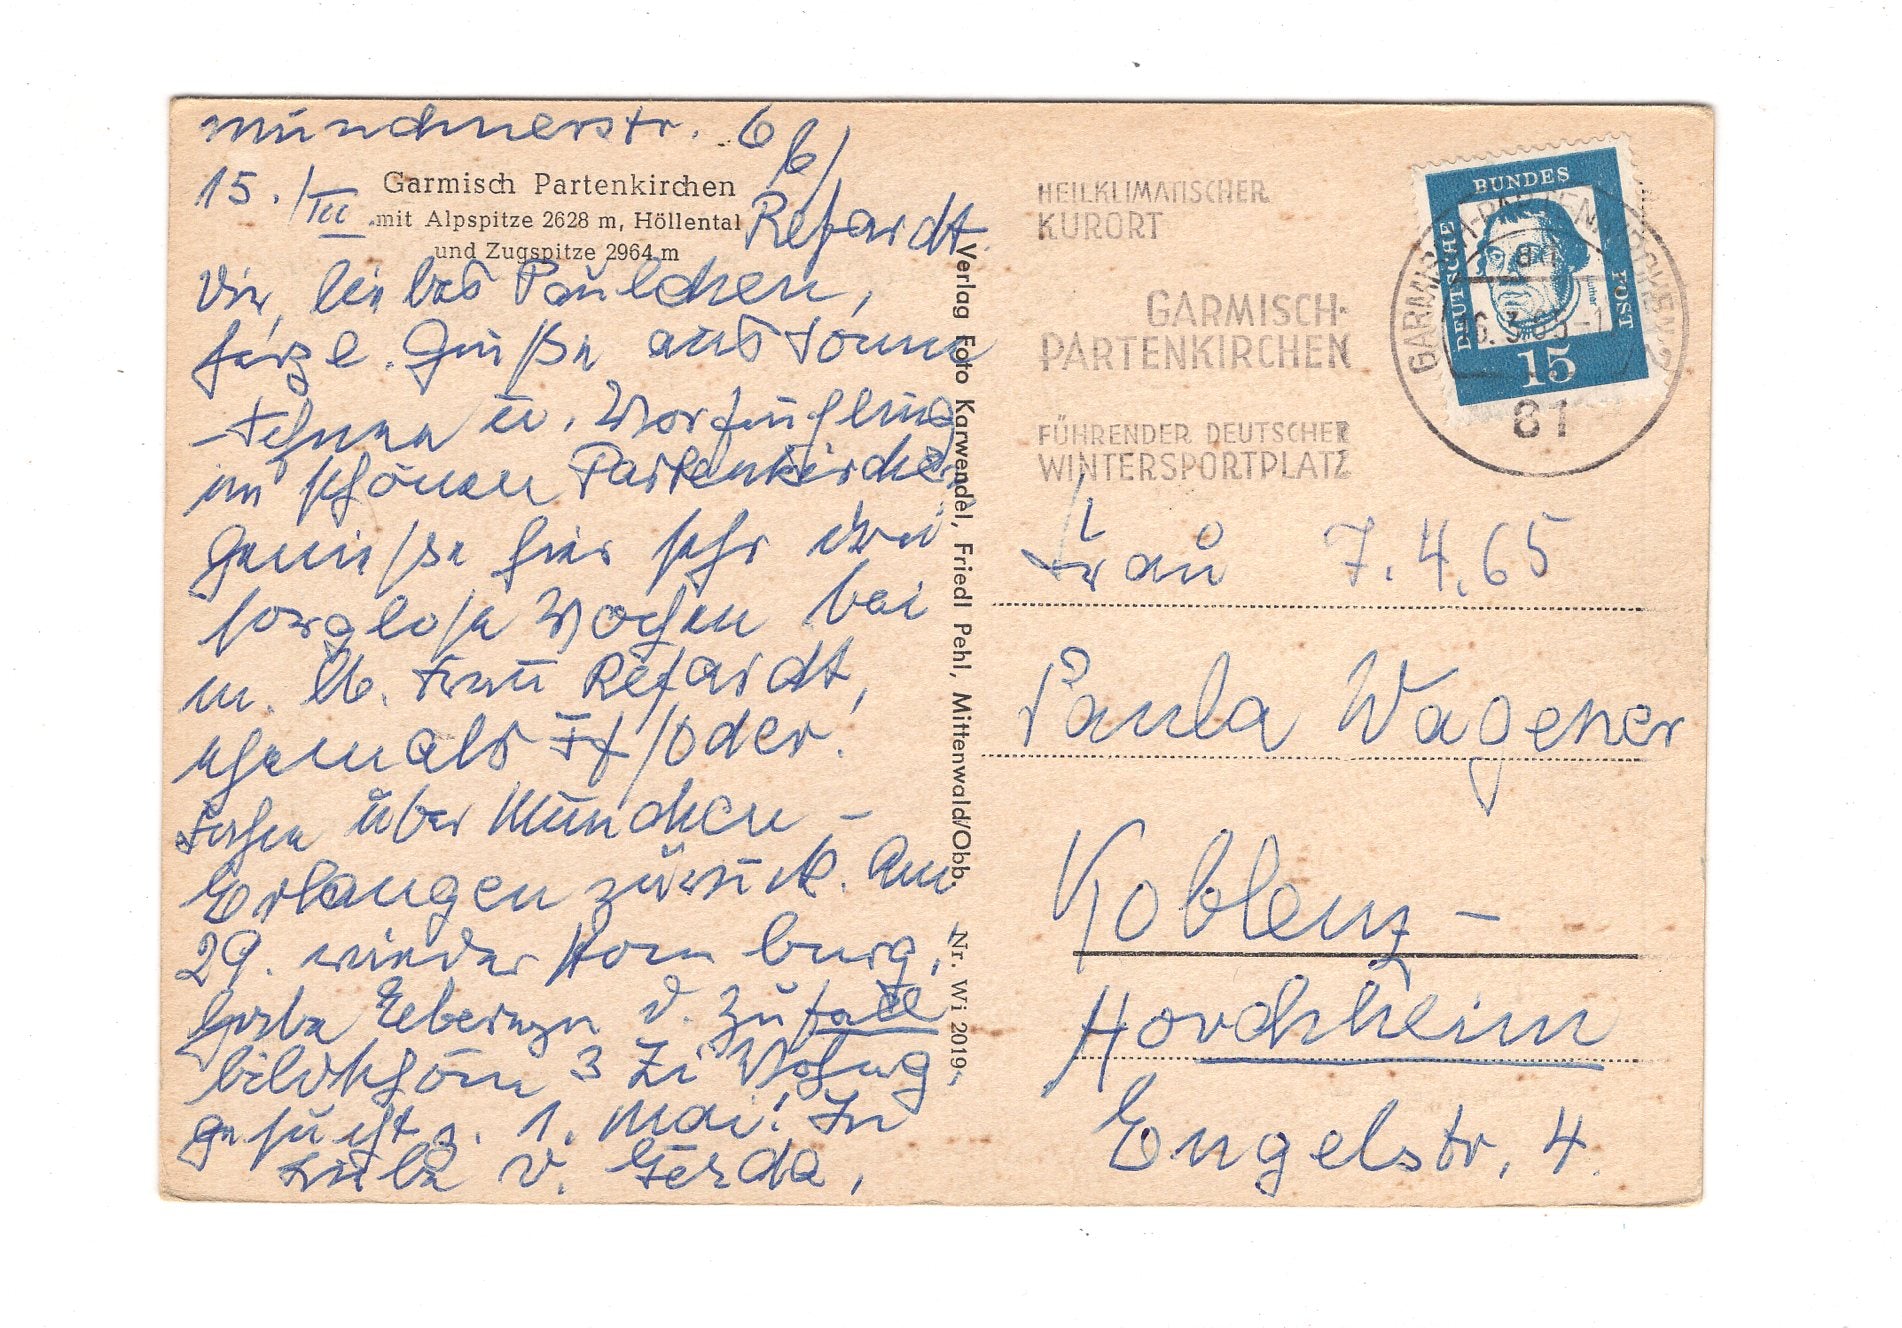 Münchnerstr. 6
b/
15./III
Refardt
Garmisch Partenkirchen
mit Alpspitze 2628 m, Höllental
und Zugspitze 2964 m
Dir, liebes Paulchen,
herzl. Grüße aus Sonne
Schnee u. Vorfrühling
im schönen Partenkirchen
Genieße hier sehr drei
sorglose Wochen bei
m. lb. Frau Refardt,
ehemals Ff/oder.
Fahre über München -
Erlangen zurück. Am
29. wieder Homburg,
habe d. Zufall
bildschöne 3 Zi Wohng
gesucht z. 1. Mai! In
Liebe v. Gerda,
Verlag Foto Karwendel, Friedl Pehl, Mittenwald/Obb. Nr. Wi 2019
HEILKLIMATISCHER
KURORT
GARMISCH-
PARTENKIRCHEN
FÜHRENDER DEUTSCHER
WINTERSPORTPLATZ
DEUTSCHE
BUNDES
POST
15
GARMISCH-PARTENKIRCHEN 2
81
Frau 7.4.65
Paula Wagener
Koblenz -
Horchheim
Engelstr. 4.